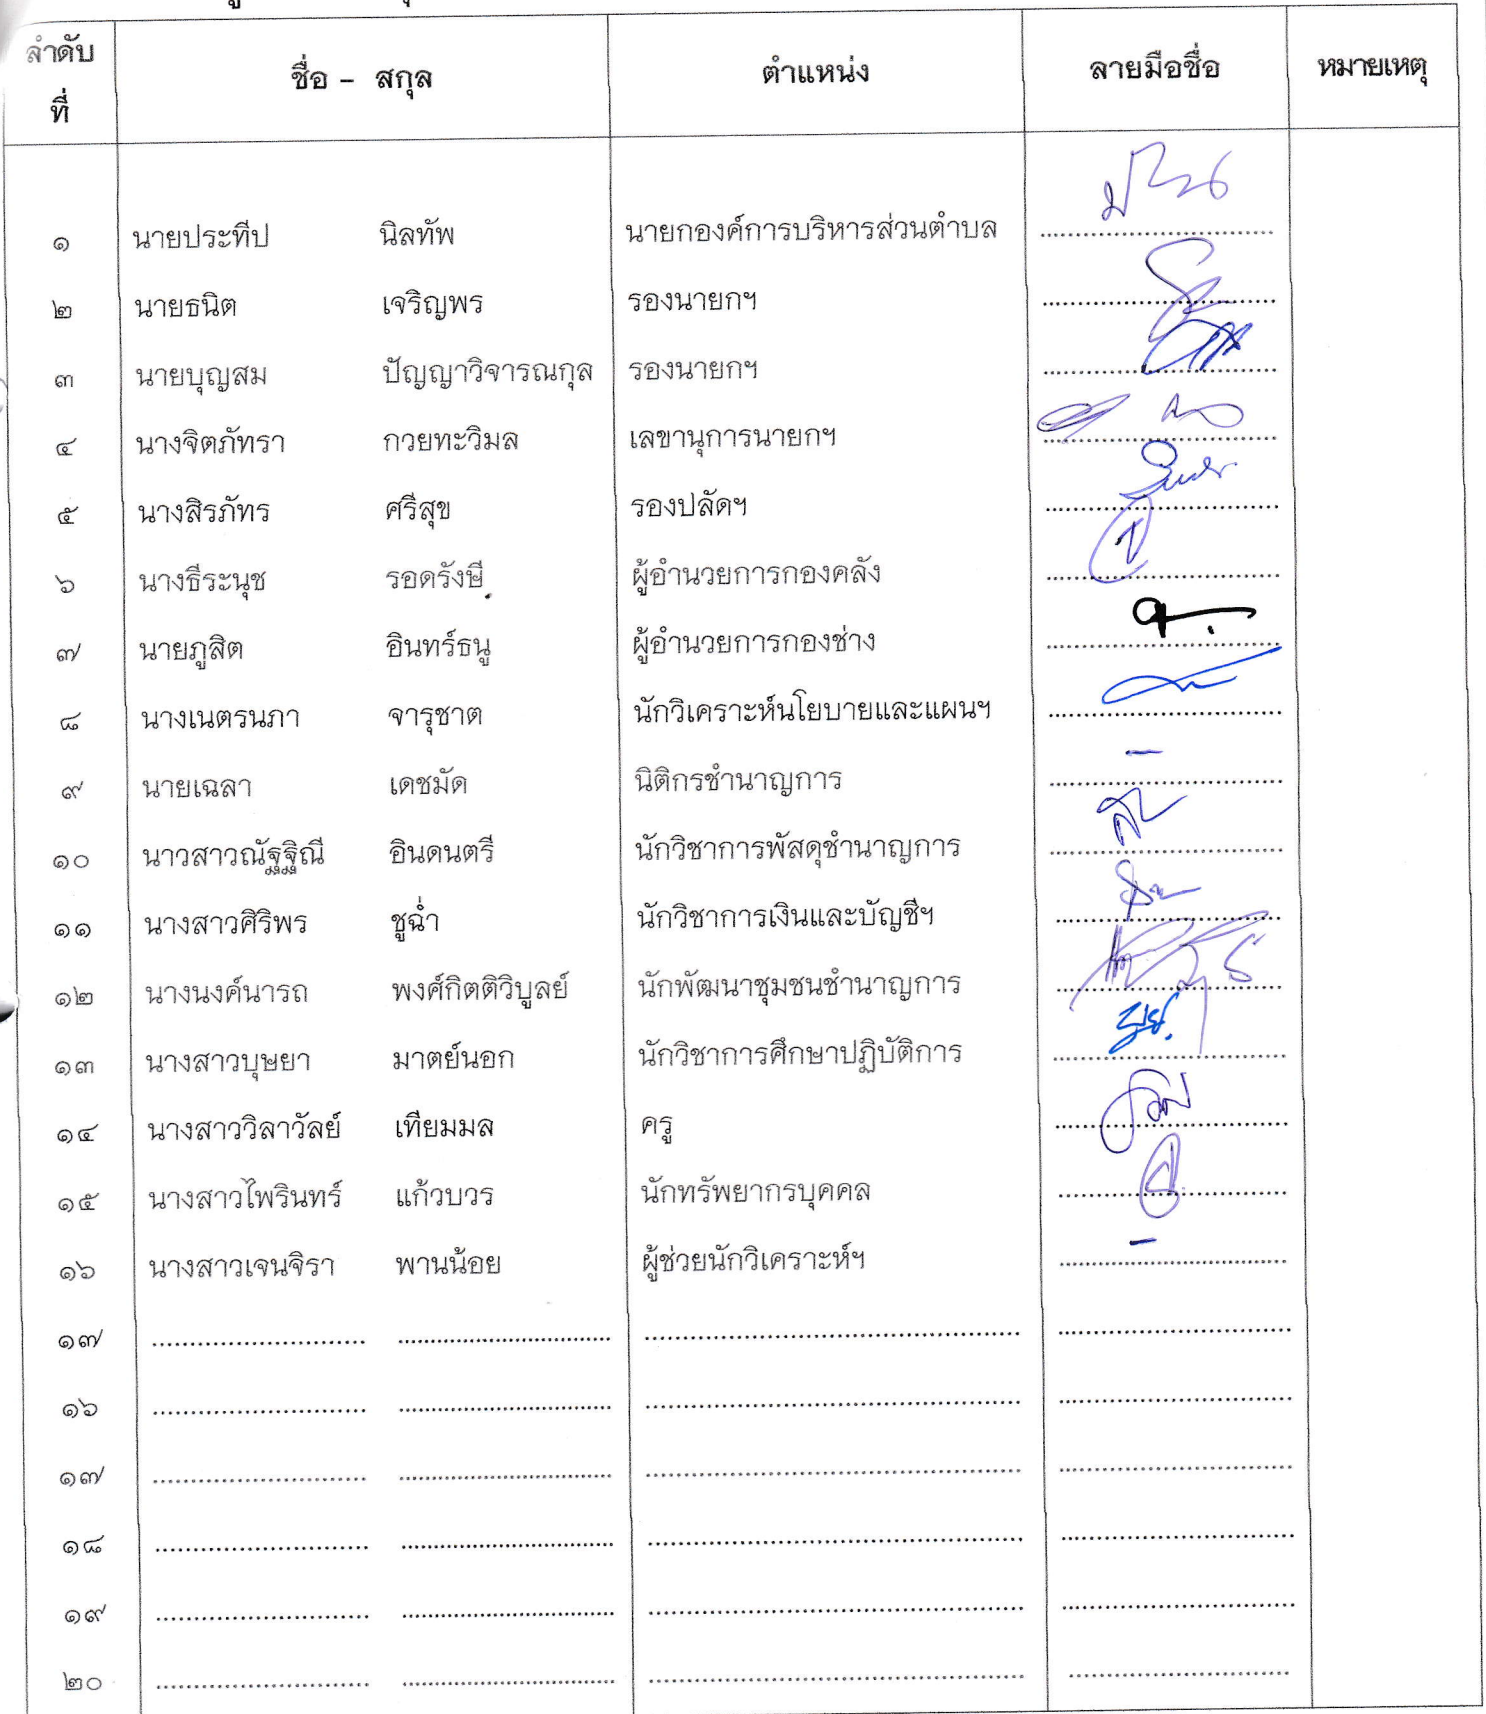 ลำดับที่ ชื่อ - สกุล ตำแหน่ง ลายมือชื่อ หมายเหตุ
๑ นายประทีป นิลทัพ นายกองค์การบริหารส่วนตำบล
๒ นายธนิต เจริญพร รองนายกฯ
๓ นายบุญสม ปัญญาวิจารณกุล รองนายกฯ
๔ นางจิตภัทรา กวยทะวิมล เลขานุการนายกฯ
๕ นางสิรภัทร ศรีสุข รองปลัดฯ
๖ นางธีระนุช รอดรังษี ผู้อำนวยการกองคลัง
๗ นายภูสิต อินทร์ธนู ผู้อำนวยการกองช่าง
๘ นางเนตรนภา จารุชาต นักวิเคราะห์นโยบายและแผนฯ
๙ นายเฉลา เดชมัด นิติกรชำนาญการ -
๑๐ นาวสาวณัฐฐิณี อินดนตรี นักวิชาการพัสดุชำนาญการ
๑๑ นางสาวศิริพร ชูฉ่ำ นักวิชาการเงินและบัญชีฯ
๑๒ นางนงค์นารถ พงศ์กิตติวิบูลย์ นักพัฒนาชุมชนชำนาญการ
๑๓ นางสาวบุษยา มาตย์นอก นักวิชาการศึกษาปฏิบัติการ
๑๔ นางสาววิลาวัลย์ เทียมมล ครู
๑๕ นางสาวไพรินทร์ แก้วบวร นักทรัพยากรบุคคล
๑๖ นางสาวเจนจิรา พานน้อย ผู้ช่วยนักวิเคราะห์ฯ -
๑๗
๑๖
๑๗
๑๘
๑๙
๒๐